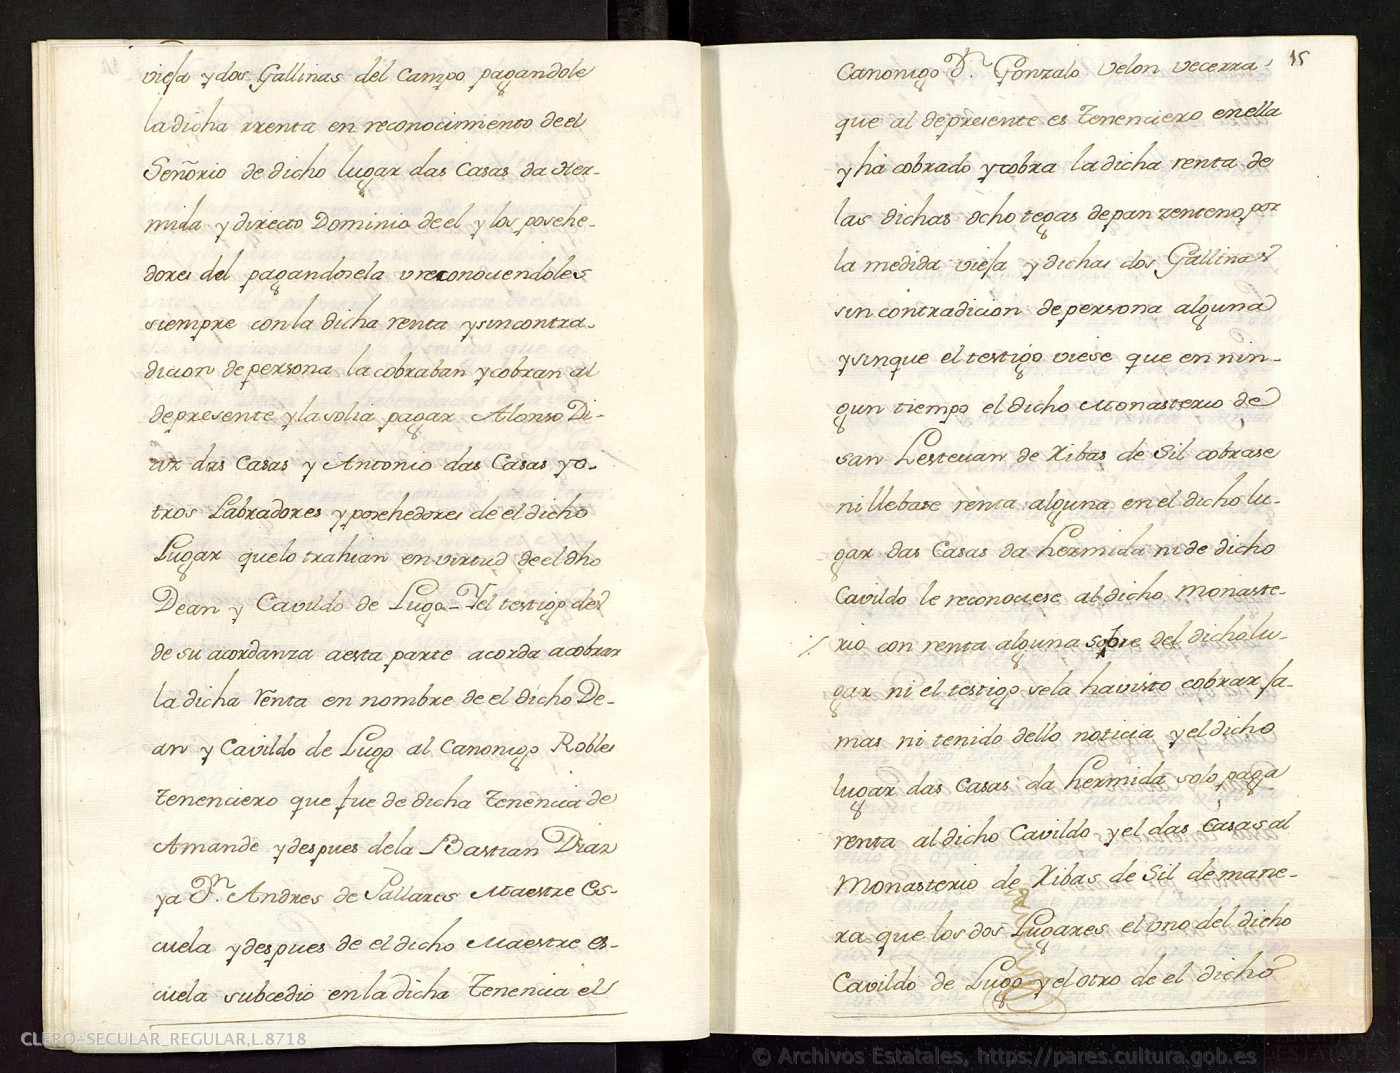 viesa y dos Gallinas del Campo pagandole
la dicha rrenta en reconocimiento de el
Señorio de dicho lugar das Casas da Her-
mida y directo Dominio de el y los posehe-
dores del pagandosela y reconociendoles
siempre con la dicha renta y sin contra-
dicion de persona la cobraban y cobran al
de presente y la solia pagar Alonso Di-
az das Casas y Antonio das Casas y o-
tros Labradores y posehedores de el dicho
Lugar que lo trahian en virtud de el dho
Dean y Cavildo de Lugo - Y el testigo des
de su acordanza aesta parte acorda a cobrar
la dicha Renta en nombre de el dicho De-
an y Cavildo de Lugo al Canonigo Robles
tenenciero que fue de dicha tenencia de
Amande y despues dela Bastian Diaz
y a Dn. Andres de Pallares Maestre Es-
cuela y despues de el dicho Maestre es-
cuela subcedio en la dicha Tenencia el
15
Canonigo Dn. Gonzalo Velon vecerra
que al depreiente es Tenenciero en ella
y ha cobrado y cobra la dicha renta de
las dichas ocho tegas de pan zenteno por
la medida viesa y dichas dos Gallinas
sin contradicion de persona alguna
y sin que el testigo viese que en nin-
gun tiempo el dicho Monasterio de
san Lestevan de Ribas de Sil cobrase
ni llebase renta alguna en el dicho lu-
gar das Casas da hermida ni de dicho
Cavildo le reconociese al dicho Monaste-
rio con renta alguna sobre del dicho lu-
gar ni el testigo sela ha visto cobrar ja-
mas ni tenido dello noticia y el dicho
lugar das Casas da hermida solo paga
renta al dicho Cavildo y el das Casas al
Monasterio de Ribas de Sil de mane-
ra que los dos Lugares el uno del dicho
Cavildo de Lugo y el otro de el dicho
CLERO-SECULAR_REGULAR,L.8718
© Archivos Estatales, https://pares.cultura.gob.es